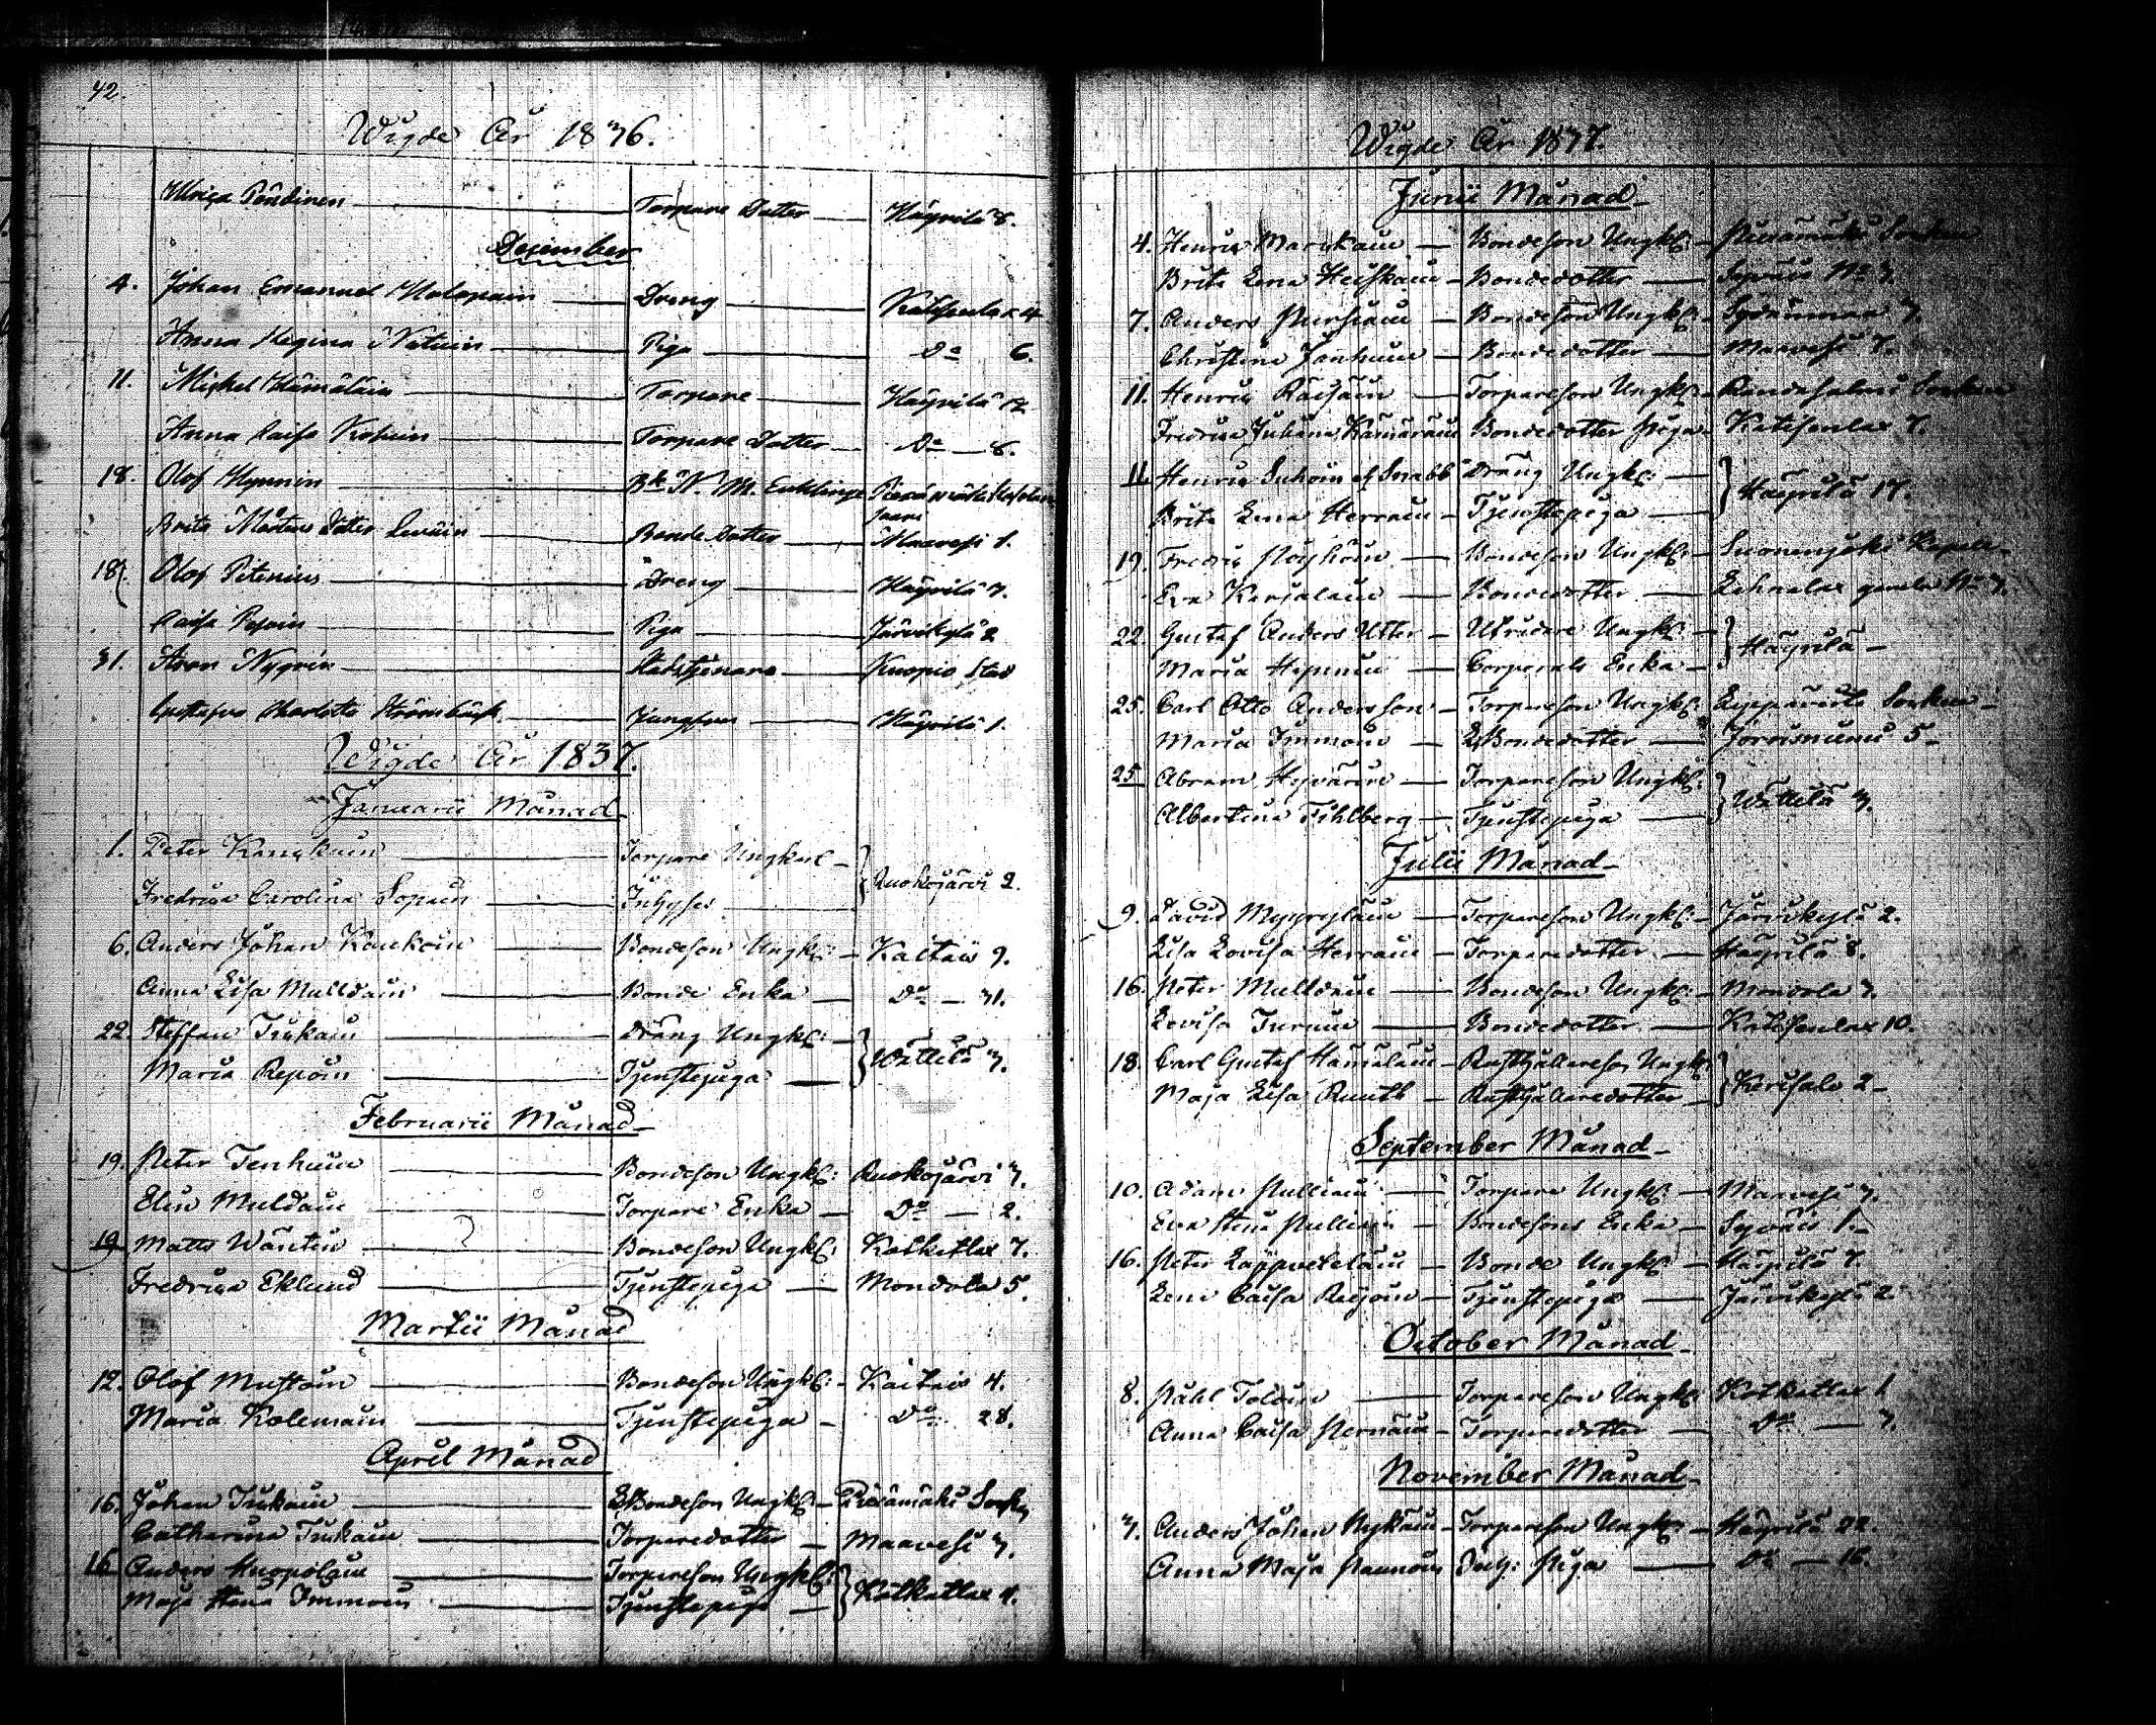 42.
Wigde År 1836.
Ulrica Pöndinen — Torpare Dotter — Häyrilä 8.
December
4. Johan Emanuel Halopain — Dreng — Katisenlax 4
Anna Regina — Piga — Do 6.
11. Michel Hämäläin — Torpare — Häyrilä 12
Anna Caisa Kohvin — Torpare Dotter — Do — 6.
18. Olof Hynnin — Piexämäki
Brita Mårtens Dotter — Bonde Dotter — Maavesi 1.
18. Olof Petenius — Dreng — Häyrilä 3.
Caisa — Piga — Järvikylä 2
31. Aron Nygrén — Kuopio Stad
Gustafva Charlotta Strömbäck — Jungfru — Häyrilä 1.
Wigde År 1837.
Januarii Månad
1. Peter Kauckuin — Torpare Ungkarl — } Ruokojärvi 2.
Fredrica Carolina Sopain — Inhyses —
6. Anders Johan Kauckoin — Bondeson Ungkl: — Kaitais 9.
Anna Lisa Mulldain — Bonde Enka — Do — 31.
22. Steffan Tiukain — Dräng Ungkl: — } Wättilä 3.
Maria Repoin — Tjenstepiga —
Februarii Månad
19. Peter Tenhuin — Bondeson Ungkl: Ruokojärvi 3.
Elin Muldain — Torpare Enka — Do — 2.
19 Matts Wäntin — Bondeson Ungkl: Kotkatlax 7.
Fredrica Eklund — Tjenstepiga — Mondola 5.
Martii Månad
12. Olof Mustoin — Bondeson Ungkl: — Kaitais 4.
Maria Kolemain — Tjenstepiga — Do 28.
April Månad
16. Johan Tiukain — Bondeson Ungkl: — Piexämäki Sockn
Catharina Tiukain — Torparedotter — Maavesi 3.
16 Anders Huopolain — Torpareson Ungkl: } Kotkatlax 4.
Maja Stina Immoin — Tjenstepiga —
Wigde År 1837.
Junii Månad
4. Henric Marckain — Bondeson Ungkl: — Piexämäki Socken
Brita Lena Heiskain — Bondedotter — Syväis No 3.
7. Anders Pursiain — Bondeson Ungkl: — Sydänmaa 7.
Christina Janhuin — Bondedotter — Maavesi 7.
11. Henric Räisäin — Torpareson Ungkl: — Randasalmi Socken
Fredrica Juliana Kämäräin Bondedotter Piga — Katisenlax 7.
11 Henric Suhoin el Snabb Dräng Ungkl: — } Häyrilä 17.
Brita Lena Herrain — Tjenstepiga —
19. Fredric Pöyhöin — Bondeson Ungkl: — Suonenjoki Kapell
Eva Karjalain — Bondedotter — Lehnelax No 3.
22. Gustaf Anders Utter — Utridare Ungkl: — } Häyrilä —
Maria Hynnin — Corporals Enka —
25. Carl Otto Andersson — Torpareson Ungkl: Leppävirta Socken —
Maria Immoin — Bondedotter — Jorvisniemi 5 —
25 Abram Hyvärin — Torpareson Ungkl: } Wättilä 3.
Albertina Fihlberg — Tjenstepiga —
Julii Månad
9. David Myyryläin — Torpareson Ungkl: — Järvikylä 2.
Lisa Lovisa Herrain — Torparedotter — Häyrilä 8.
16. Peter Mulldain — Bondeson Ungkl: — Mondola 3.
Lovisa Turuin — Bondedotter — Katisenlax 10.
18. Carl Gustaf Hämäläin — Rusthållareson Ungkl: } Kerisalo 2 —
Maja Lisa Ruuth — Rusthållaredotter —
September Månad
10. Adam Pulliain — Torpare Ungkl: — Maavesi 3.
Eva Stina Pulliain — Bondesons Enka — Syväis 1.
16. Peter Lappveteläin — Bonde Ungkl: — Häyrilä 7.
Lena Caisa Reijoin — Tjenstepiga — Järvikylä 2
October Månad
8. Påhl Toloin — Torpareson Ungkl: Kotkatlax 1
Anna Caisa Pernäin — Torparedotter — Do — 3.
November Månad
3. Anders Johan Nykäin — Torpareson Ungkl: — Häyrilä 22.
Anna Maja Paunoin Inh: Piga — Do — 16.